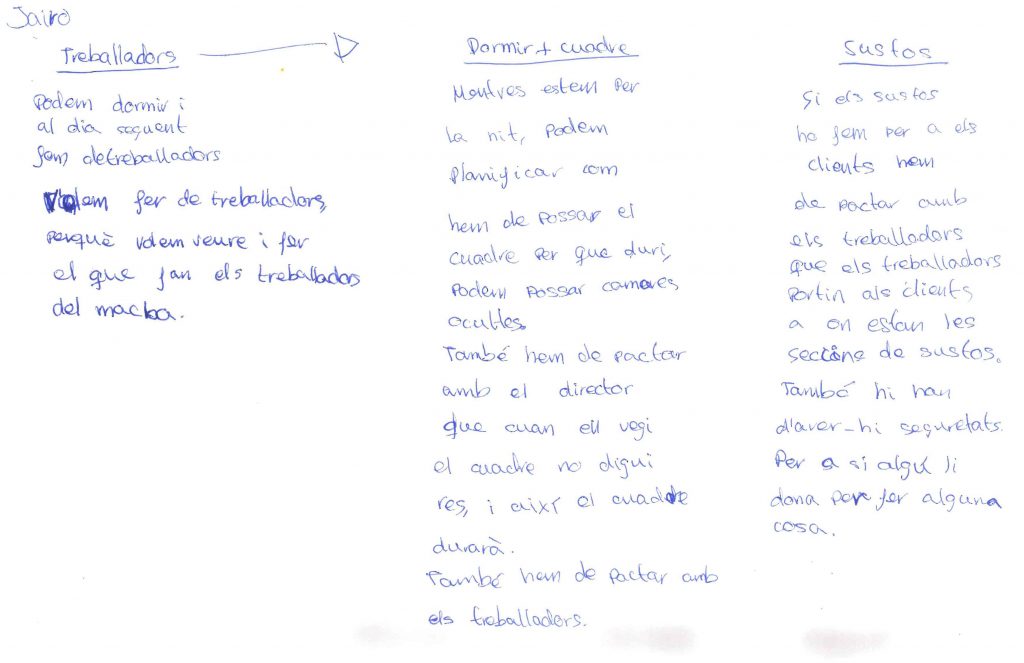 Jairo
Treballadors
Podem dormir i
al dia seguent
fem detreballadors
Volem fer de treballadors,
perquè volem veure i fer
el que fan els treballadors
del macba.
Dormir + cuadre
Mentres estem per
la nit, podem
planificar com
hem de possar el
cuadre per que duri,
podem possar cameres
ocultes.
També hem de pactar
amb el director
que cuan ell vegi
el cuadre no digui
res, i així el cuadre
durarà.
També hem de pactar amb
els treballadors.
Sustos
Si els sustos
ho fem per a els
clients hem
de pactar amb
els treballadors
que els treballadors
portin als clients
a on estan les
seccións de sustos.
També hi han
d'aver-hi seguretats.
Per a si algú li
dona per fer alguna
cosa.